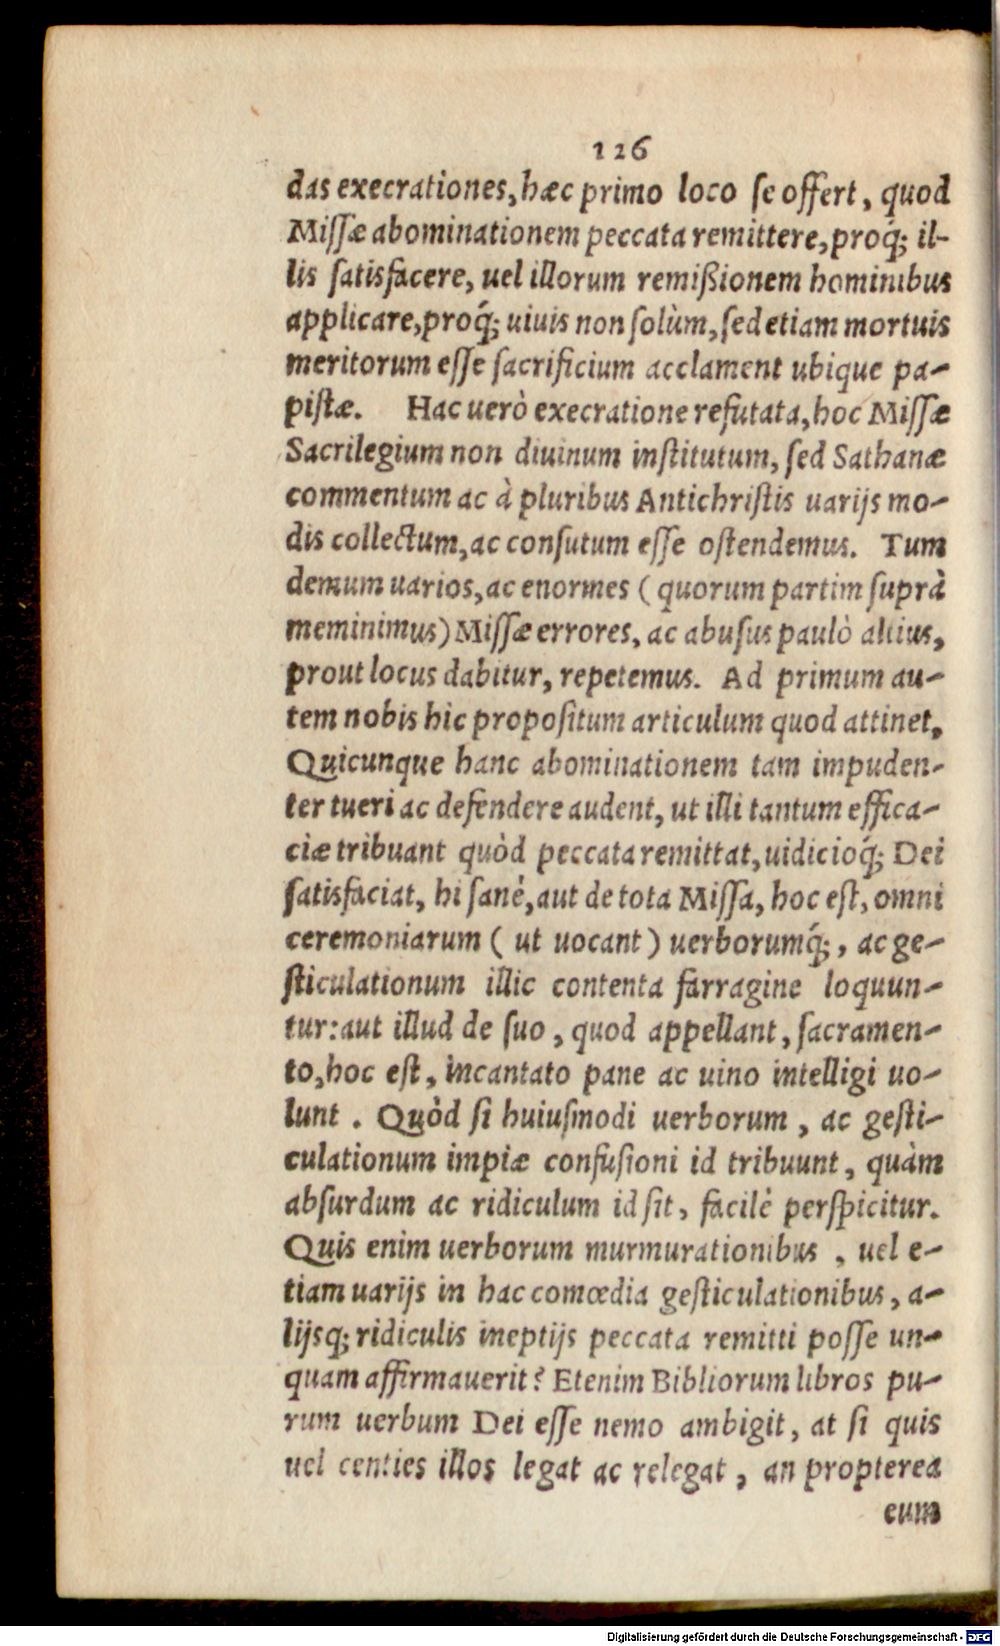 126
das execrationes, hæc primo loco se offert, quod
Missæ abominationem peccata remittere, proq́; il-
lis satisfacere, uel illorum remißionem hominibus
applicare, proq́; uiuis non solùm, sed etiam mortuis
meritorum esse sacrificium acclament ubique pa-
pistæ. Hac uerò execratione refutata, hoc Missæ
Sacrilegium non diuinum institutum, sed Sathanæ
commentum ac à pluribus Antichristis uarijs mo-
dis collectum, ac consutum esse ostendemus. Tum
demum uarios, ac enormes ( quorum partim suprà
meminimus) Missæ errores, ac abusus paulò altius,
prout locus dabitur, repetemus. Ad primum au-
tem nobis hic propositum articulum quod attinet,
Quicunque hanc abominationem tam impuden-
ter tueri ac defendere audent, ut illi tantum effica-
ciæ tribuant quòd peccata remittat, uidicioq́; Dei
satisfaciat, hi sanè, aut de tota Missa, hoc est, omni
ceremoniarum ( ut uocant ) uerborumq́;, ac ge-
sticulationum illic contenta farragine loquun-
tur: aut illud de suo, quod appellant, sacramen-
to, hoc est, incantato pane ac uino intelligi uo-
lunt. Quòd si huiusmodi uerborum, ac gesti-
culationum impiæ confusioni id tribuunt, quàm
absurdum ac ridiculum id sit, facilè perspicitur.
Quis enim uerborum murmurationibus, uel e-
tiam uarijs in hac comœdia gesticulationibus, a-
lijsq; ridiculis ineptijs peccata remitti posse un-
quam affirmauerit? Etenim Bibliorum libros pu-
rum uerbum Dei esse nemo ambigit, at si quis
uel centies illos legat ac relegat, an propterea
eum
Digitalisierung gefördert durch die Deutsche Forschungsgemeinschaft - DFG